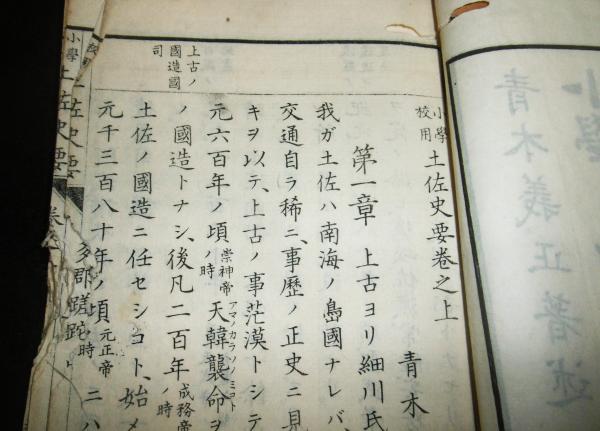 小學校用 土佐史要卷之上
青木
第一章 上古ヨリ細川氏
我ガ土佐ハ南海ノ島國ナレバ、
交通自ラ稀ニ、事歷ノ正史ニ見
キヲ以テ、上古ノ事茫漠トシテ
元六百年ノ頃崇神帝ノ時天韓襲命ヲ
アマノカラソノミコト
ノ國造トナシ、後凡二百年成務帝ノ時
土佐ノ國造ニ任セシコト、始メ
元千三百八十年ノ頃元正帝ノ時
多郡蹉跎
上古ノ國造國司
小學土佐史要
青木義正著述